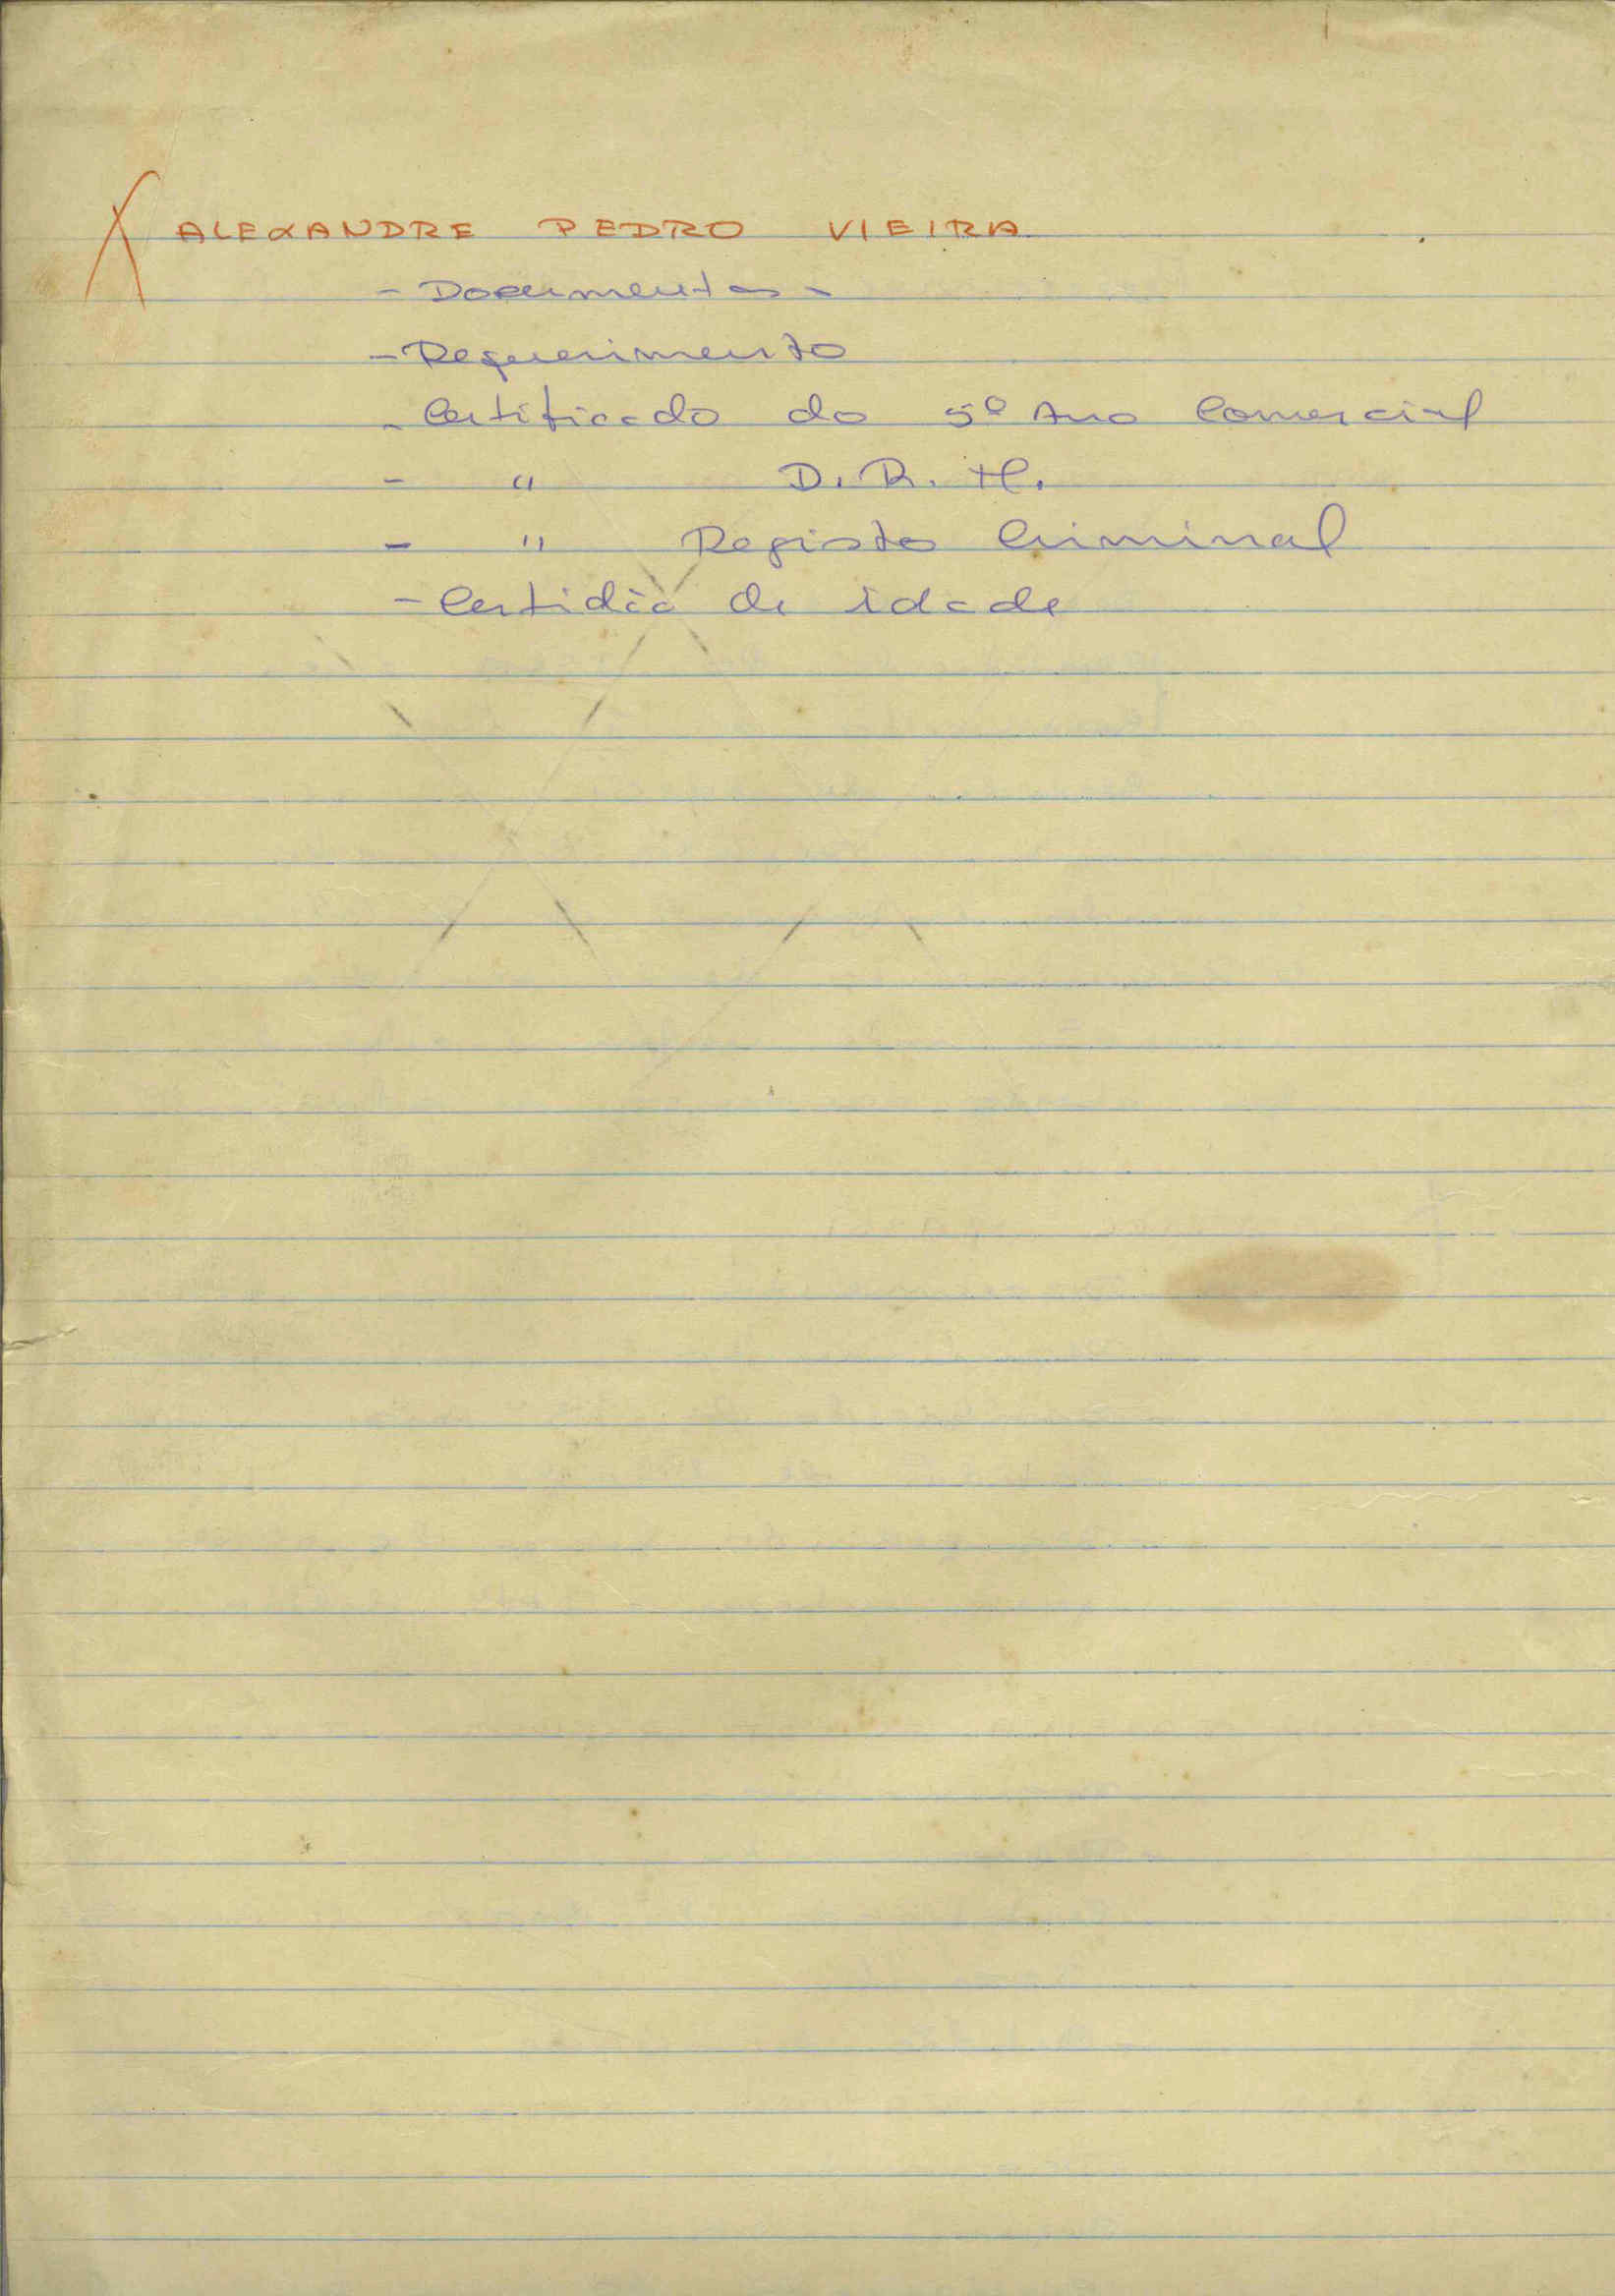 X ALEXANDRE PEDRO VIEIRA
- Documentos -
- Requerimento
- Certificado do 5º Ano Comercial
- " D. R. M.
- " Registo Criminal
- Certidão de idade